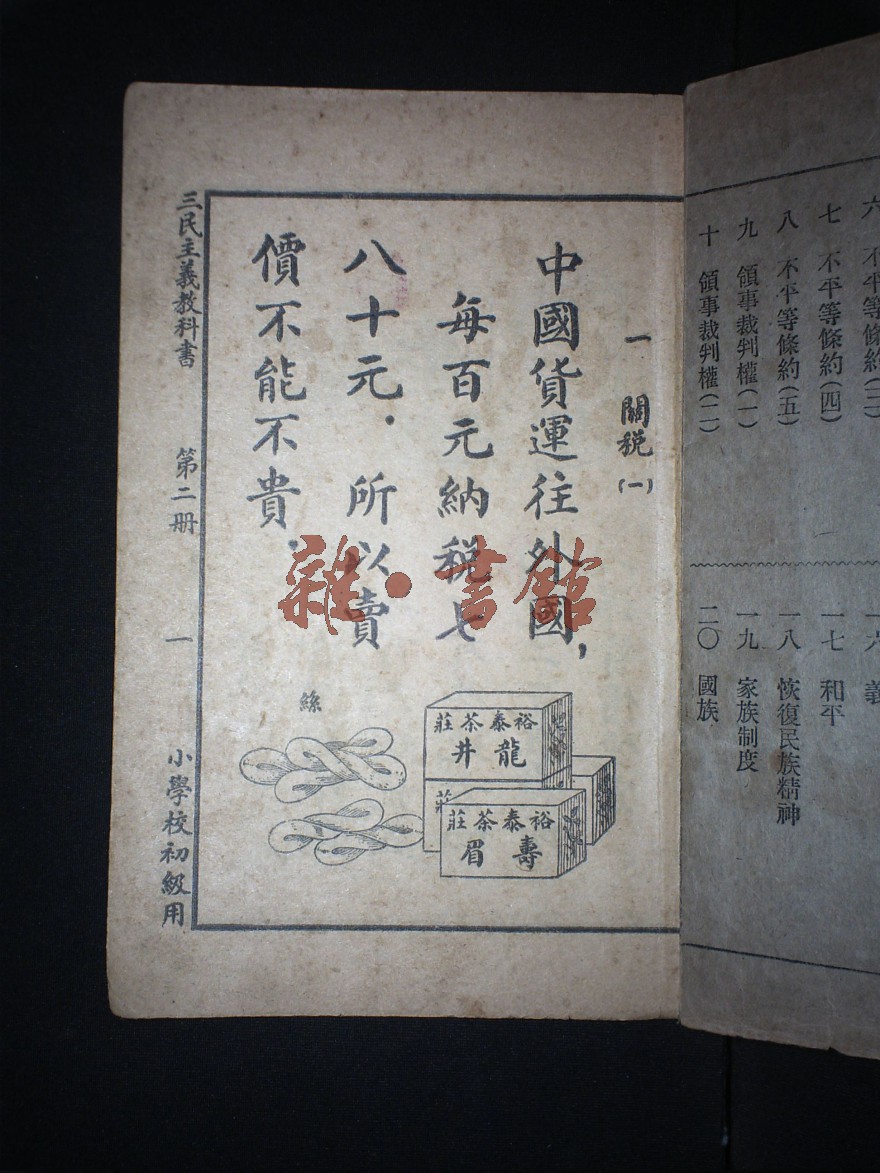 六 不平等條約(三)
七 不平等條約(四)
八 不平等條約(五)
九 領事裁判權(一)
十 領事裁判權(二)
一六 義
一七 和平
一八 恢復民族精神
一九 家族制度
二〇 國族
一 關稅(一)
中國貨運往外國,
每百元納稅七
八十元.所以賣
價不能不貴.
絲
裕泰茶莊
龍井
莊
裕泰茶莊
壽眉
三民主義教科書 第二册 一 小學校初級用
雜·書館